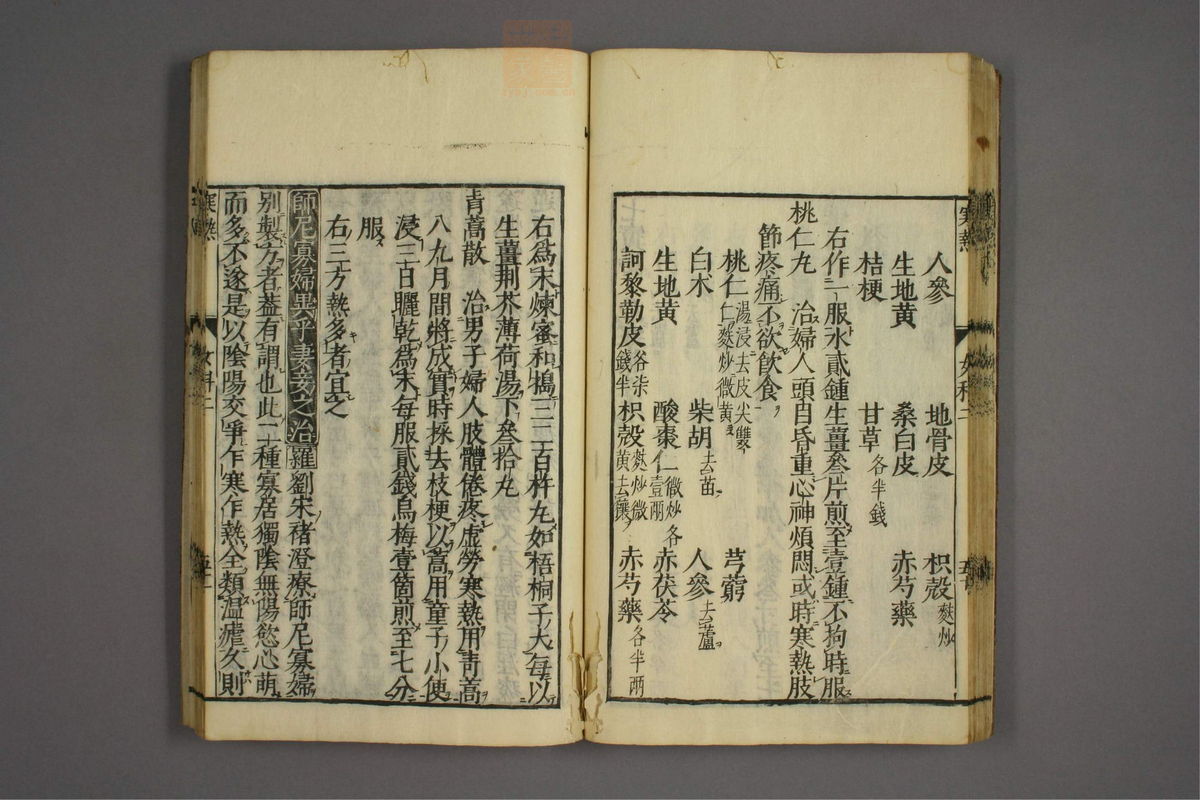 人參　地骨皮　枳殼麩炒
生地黃　桑白皮　赤芍藥
桔梗　甘草各半錢
右作一服水貳鍾生薑叄片煎至壹鍾不拘時服
桃仁丸　治婦人頭目昏重心神煩悶或時寒熱肢
節疼痛不欲飲食
桃仁湯浸去皮尖雙仁麩炒微黃　芎藭
白朮　柴胡去苗　人參去蘆
生地黃　酸棗仁微炒各壹兩　赤茯苓
訶黎勒皮各柒錢半　枳殼麩炒微黃去穰　赤芍藥各半兩
右爲末煉蜜和搗三二百杵丸如梧桐子大每以
生薑荆芥薄荷湯下叄拾丸
青蒿散　治男子婦人肢體倦疼虛勞寒熱用青蒿
八九月間將成實時採去枝梗以蒿用童子小便
浸三日曬乾爲末每服貳錢烏梅壹箇煎至七分
服
右三方熱多者宜之
師尼寡婦異乎妻妾之治　羅　劉宋褚澄療師尼寡婦
別製方者蓋有謂也此二種寡居獨陰無陽慾心萌
而多不遂是以陰陽交爭乍寒乍熱全類温瘧久則
寒熱　女科二